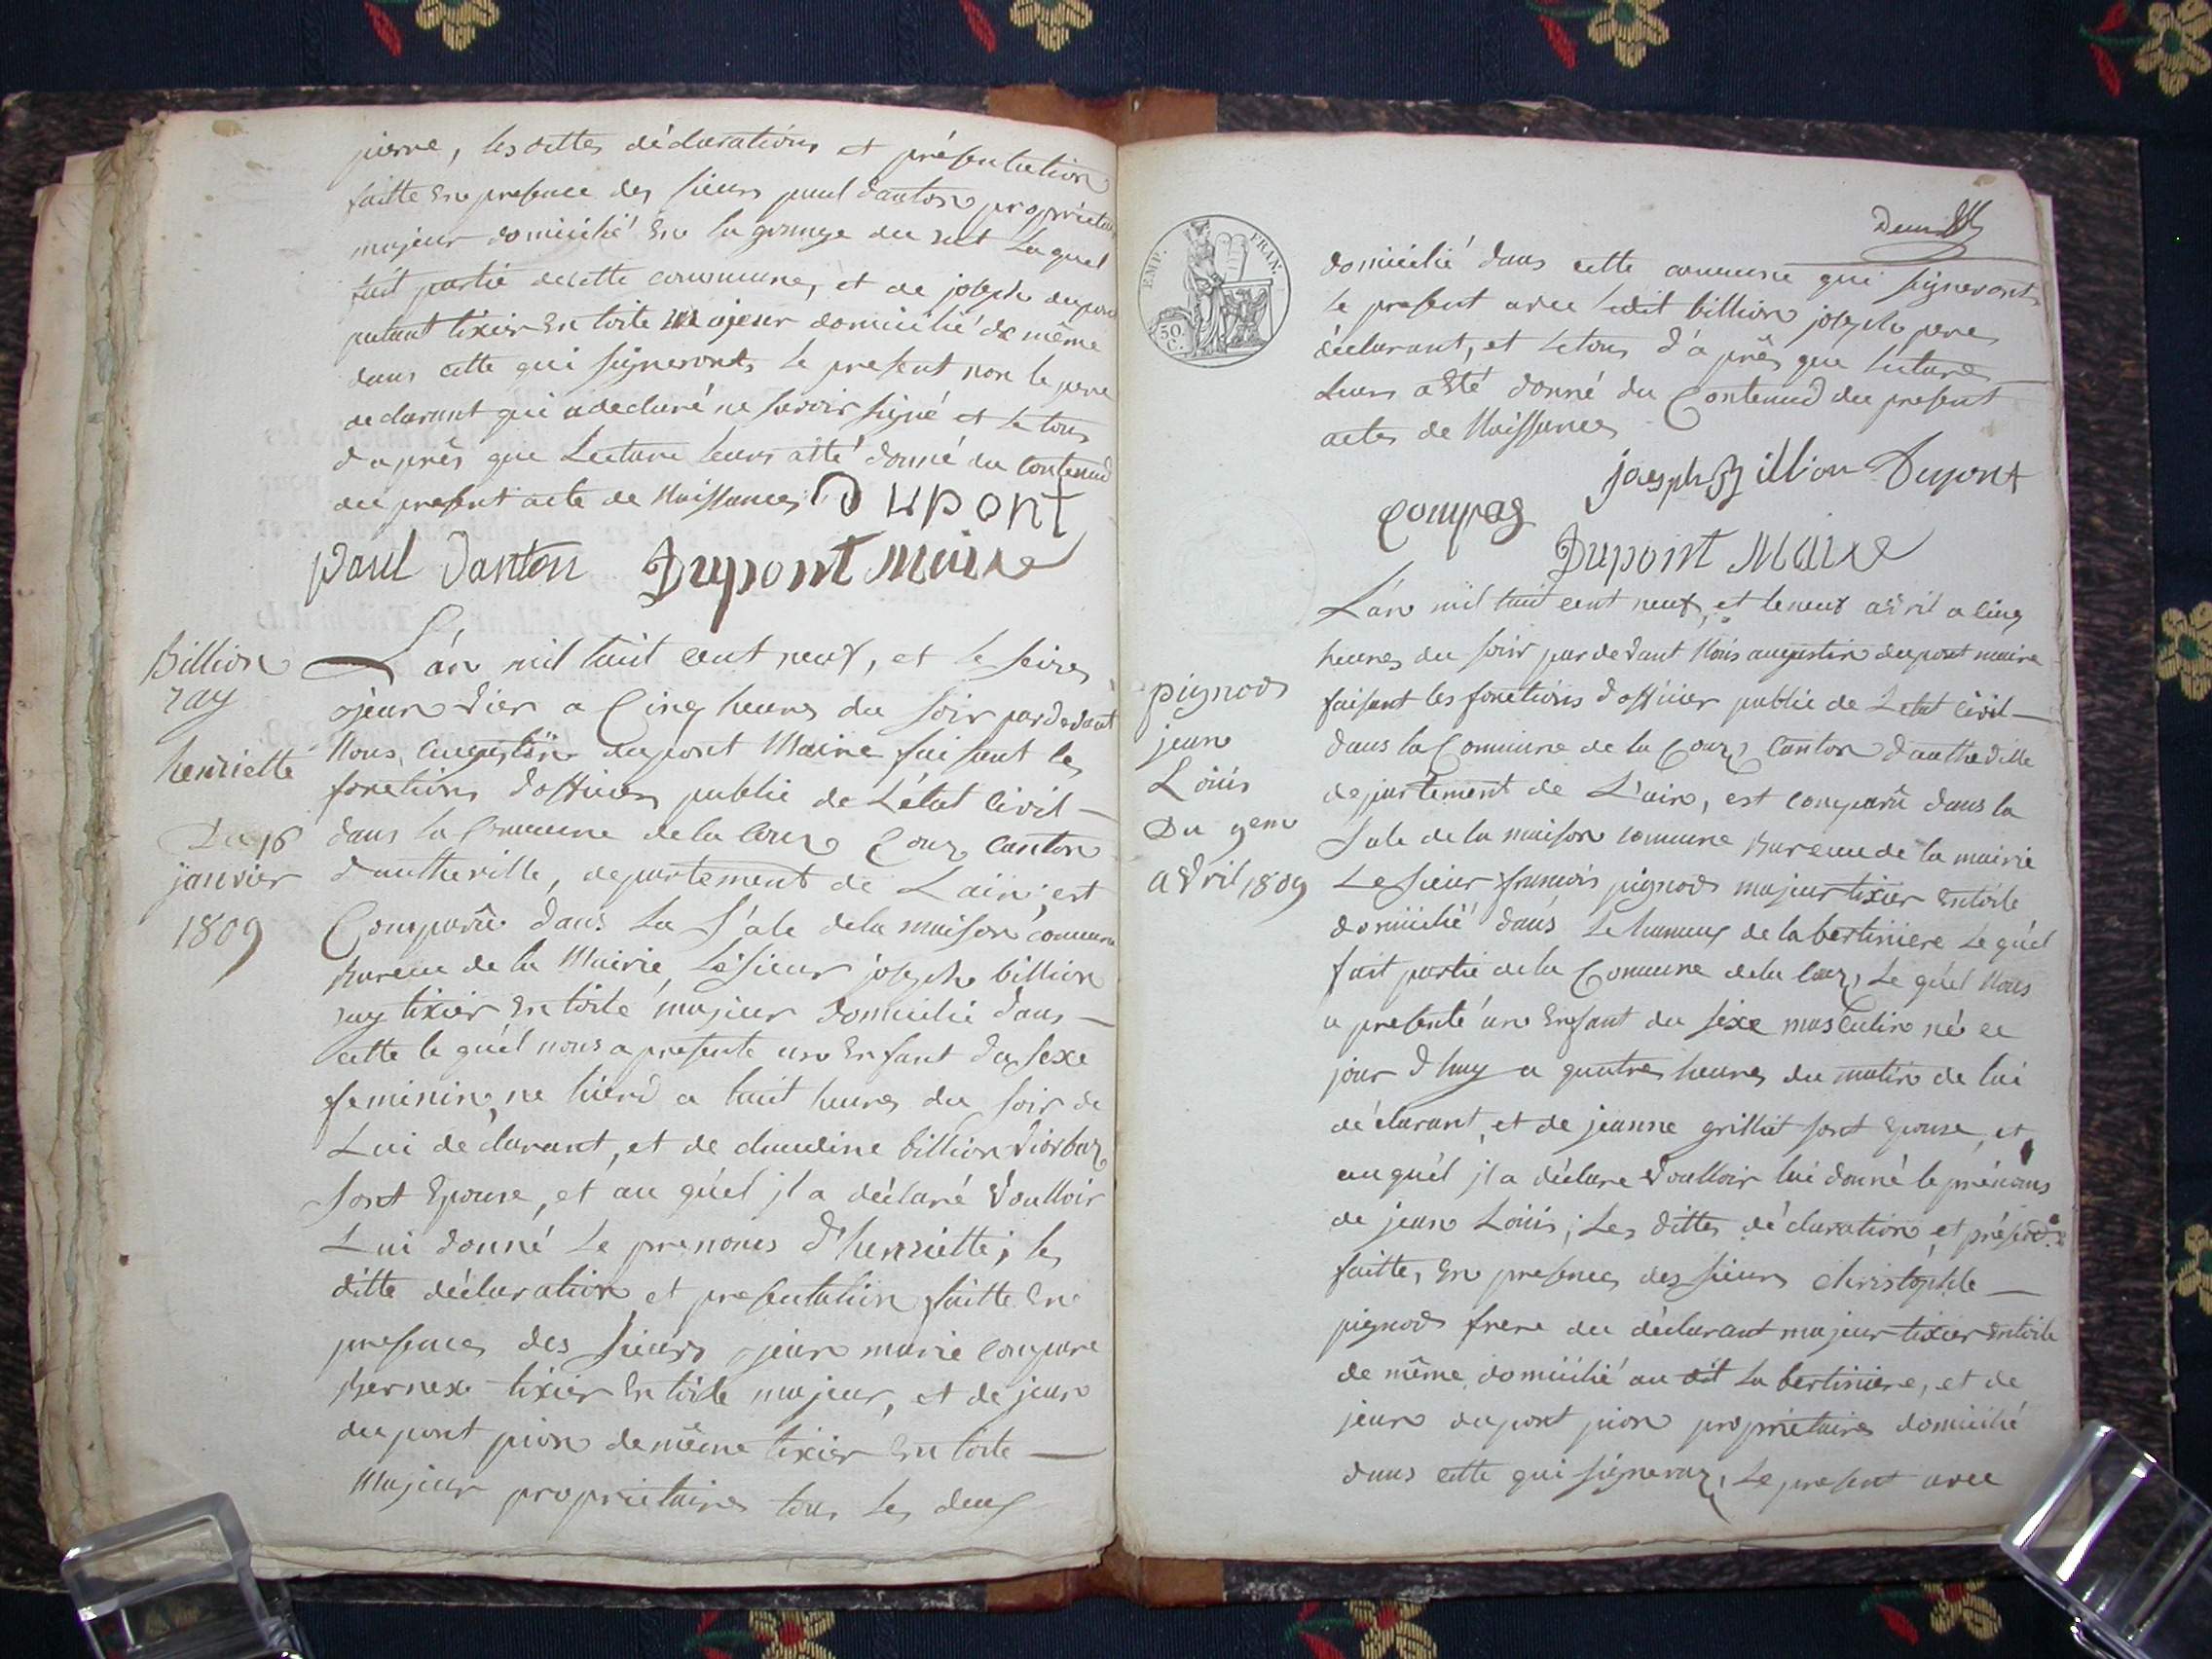 pierre, les dittes déclarations et présentation
faitte En presence des sieurs paul danton propriétaire
majeur domicilié En la grange du Lequel
fait partie de cette commune, et de joseph dupont
tixier En toile majeur domicilié de même
dans cette qui signeronts le present non le pere
declarant qui a declaré ne savoir signé et le tous
d'après que Lecture leurs a été donné du Contenud
du present acte de Naissances Dupont
paul danton Dupont Maire
Billion
ray
henriette
Du 16
janvier
1809
L'an mil huit cent neuf, et le seize
janvier a Cinq heures du soir pardevant
Nous, augustin dupont Maire faisant les
fonctions d'officier public de L'état Civil
dans la Commune de la Coux Coux Canton
d'autheville, departement de Lain, est
Comparû dans la Sale de la maison commune
Bureau de la Mairie, le sieur joseph billion
ray tixier En toile majeur domicilié dans
cette le quél nous a presente un Enfant du sexe
feminin, ne hierd a huit heures du soir de
Lui déclarant, et de claudine billion
sont Epouse, et au quél jl a déclaré Voulloir
Lui donné Le prenoms d'henriette; les
ditte déclaration et presentation faitte En
presences des sieurs jean marie compare
Bernex tixier En toile majeur, et de jean
dupont pion de même tixier En toile
Majeur proprietaires tous les deux
EMP. FRAN.
50 C.
domicilié dans cette commune qui signeronts
le present avec ledit billion joseph pere
déclarant, et le tous d'après que lecture
Leurs a Eté donné du Contenud du present
actes de Naissances
joseph Billion Dupont
Compag
Dupont Maire
pignod
jean
Loúis
Du 9em
avril 1809
L'an mil huit cent neuf, et le neuf avril a cinq
heures du soir pardevant Nous augustin dupont maire
faisant les fonctions d'officier public de Letat Civil
dans la Commune de la Coux, Canton d'autheville
departement de L'ain, est comparû dans la
Sale de la maison commune Bureau de la mairie
Le sieur françois pignod majeur tixier En toile
domicilié dans Le hameux de la bertiniere Le quél
fait partie de la Commune de la Coux, Le quél Nous
a presenté un Enfant du sexe masculin né ce
jour d'huy a quatres heures du matin de lui
déclarant, et de jeanne grilliet sont Epouse, et
au quél jl a déclare Voulloir lui donné le prénoms
de jean Loúis; Les dittes déclaration et présend.
faitte, En presences des sieurs christophle
pignod frere du déclarant majeur tixier En toile
de même domicilié au dit La bertiniere, et de
jean dupont pion proprietaires domicilié
dans cette qui Le present avec